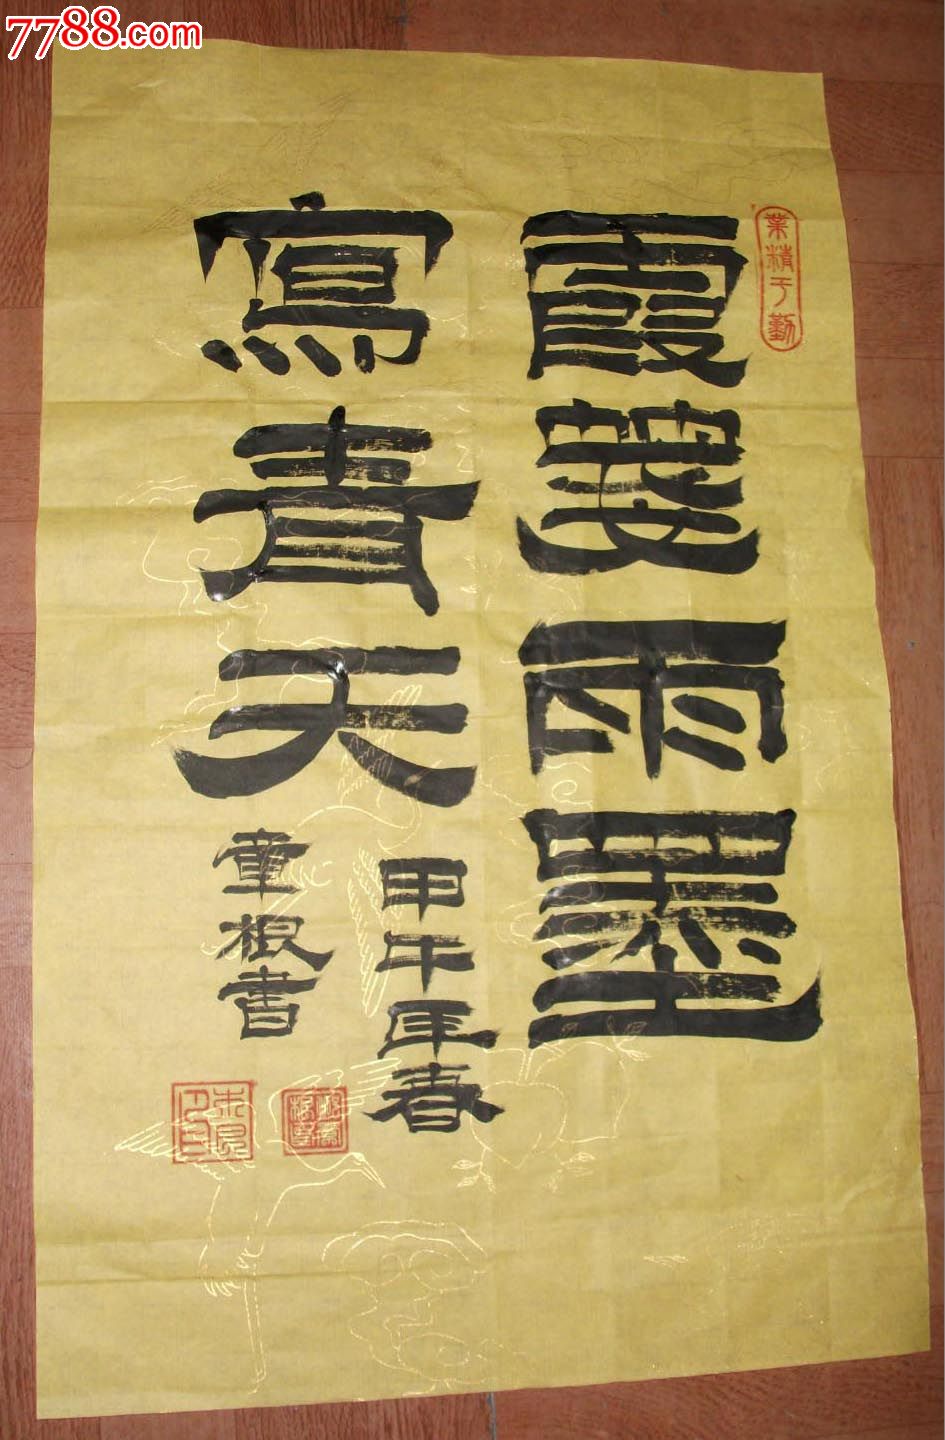 7788.com
業精于勤
霞箋雨墨
寫青天
甲午年春
章根書